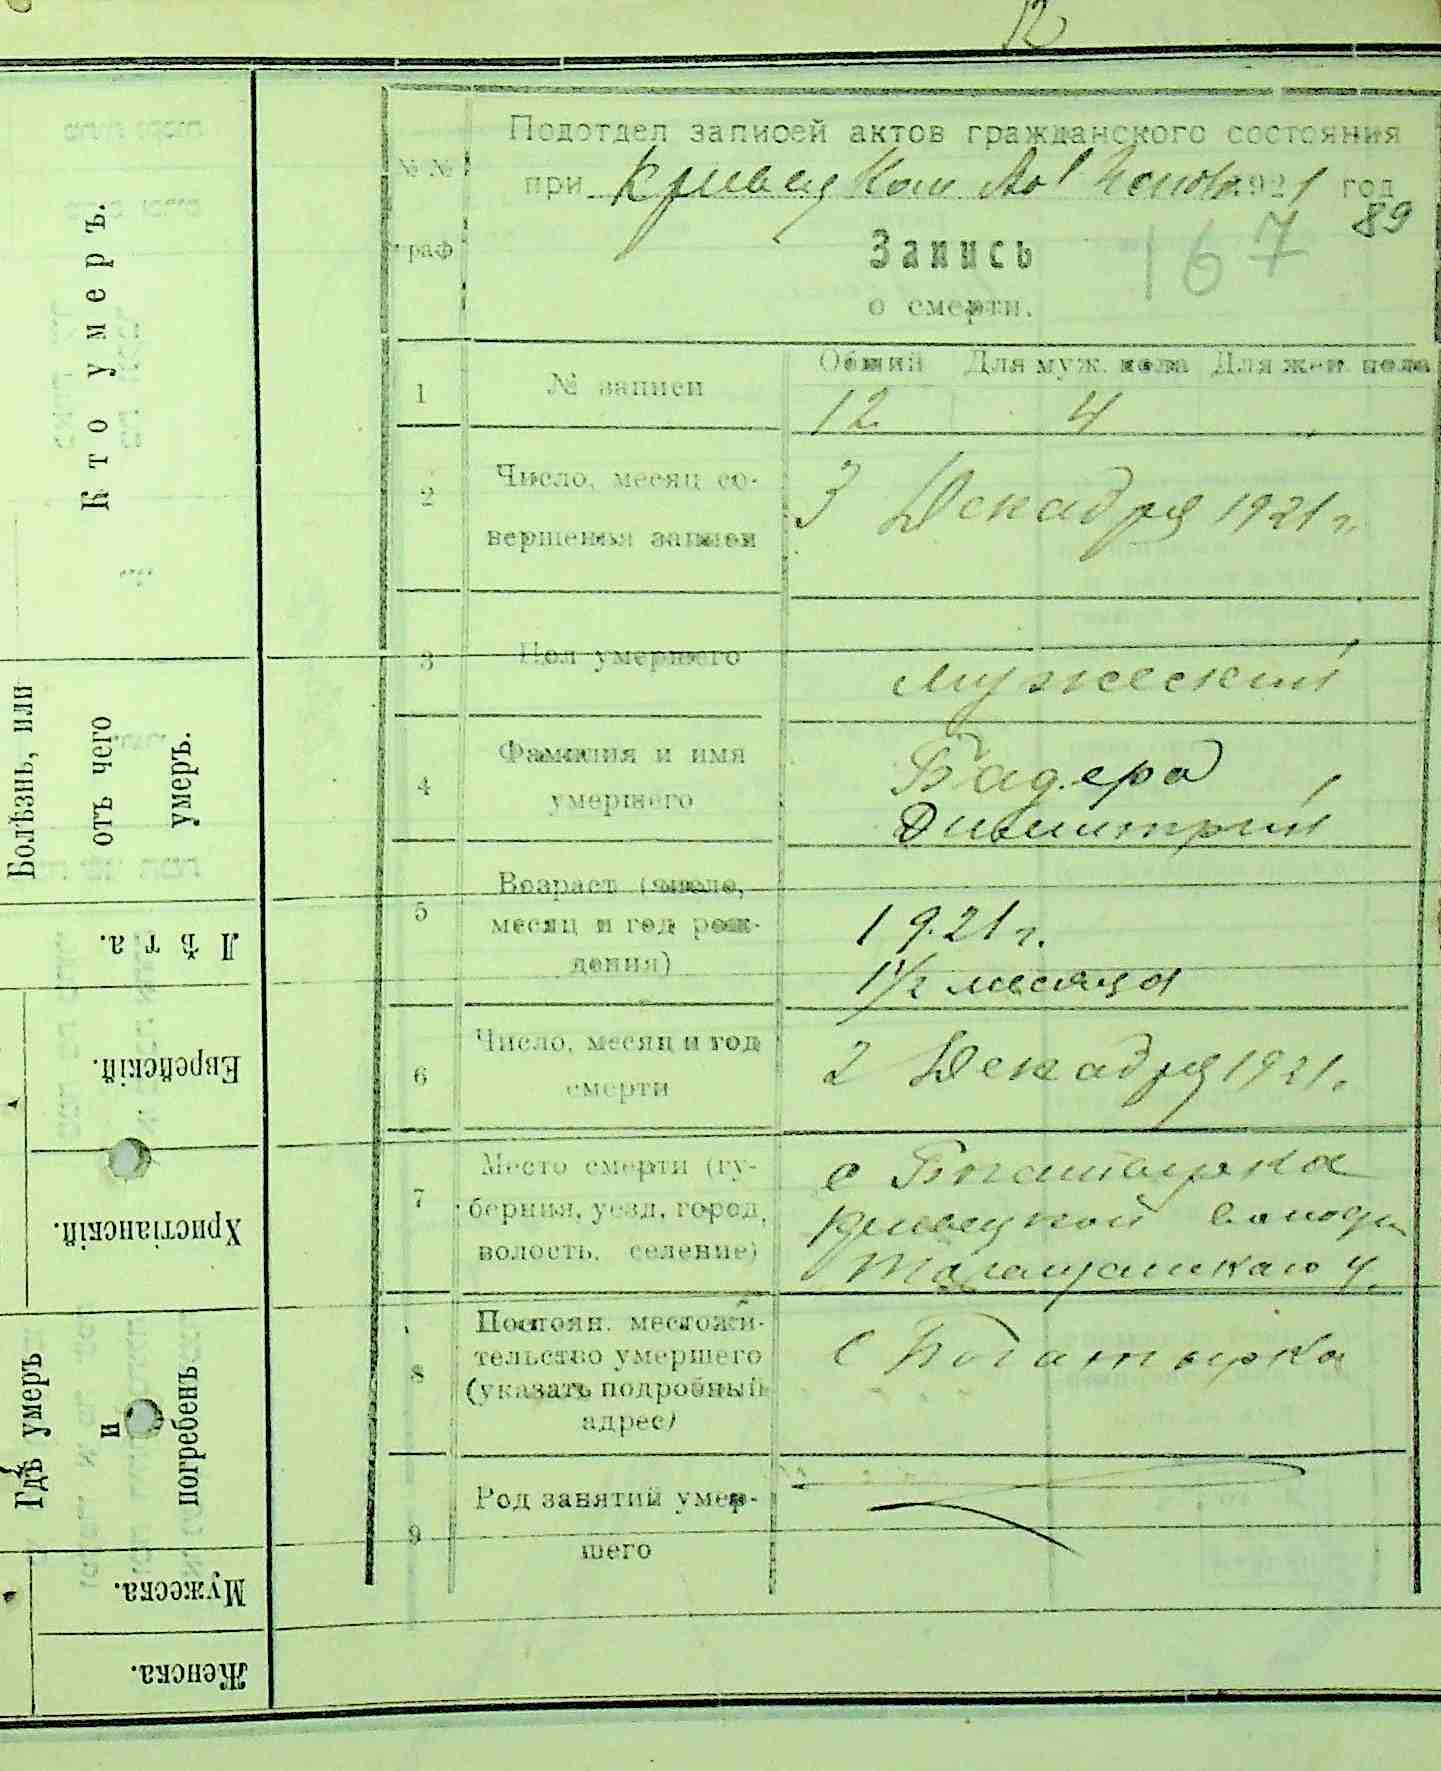 12
Кто умеръ.
Болѣзнь, или
отъ чего
умеръ.
Лѣта.
Еврейскій.
Христіанскій.
Гдѣ умеръ
и
погребенъ
Мужеска.
Женска.
№№
граф
Подотдел записей актов гражданского состояния
при 1921 год
89
Запись
167
о смерти.
Общий Для муж. пола Для жен. пола
1 № записи 12 4
2 Число, месяц со-
вершенья записи
3 Декабря 1921 г.
3 Пол умершего мужеский
4 Фамилия и имя
умершего
Бадера
Димитрий
5 Возраст (число,
месяц и год рож-
дения)
1921 г.
1½ месяца
6 Число, месяц и год
смерти
2 Декабря 1921.
7 Место смерти (гу-
берния, уезд, город,
волость, селение)
с Богатырка
Кривецкой волости
Таращанскаго у.
8 Постоян. местожи-
тельство умершего
(указать подробный
адрес)
с Богатырка
9 Род занятий умер-
шего